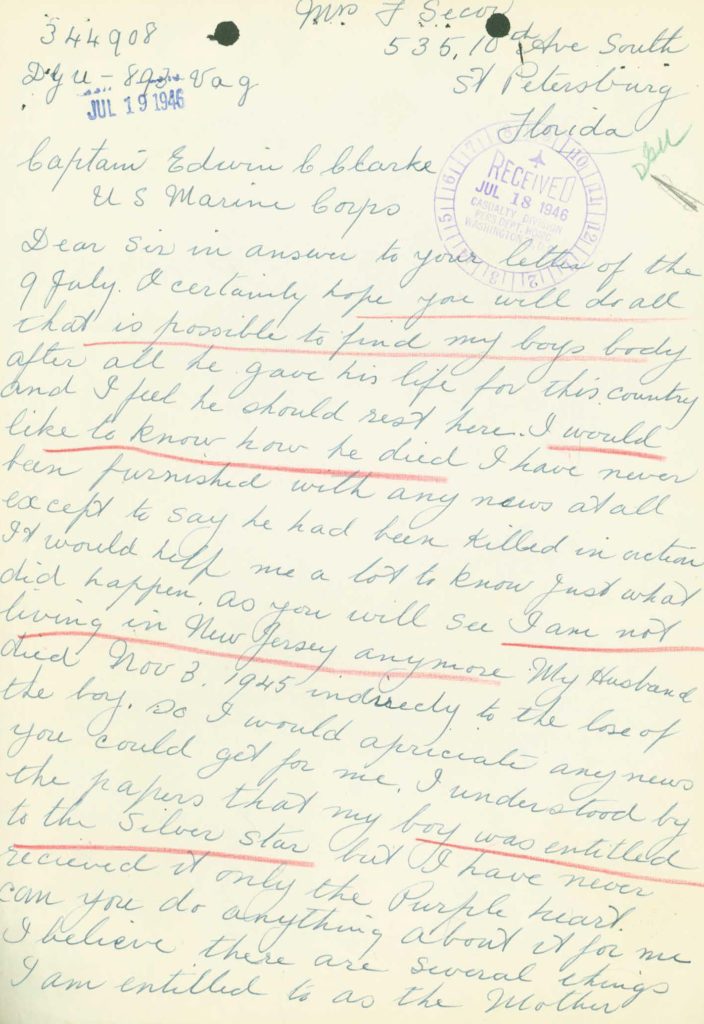 Mrs F Secor
344908
535, 10th Ave South
Dgu - 893 - Vag
St Petersburg
JUL 19 1946
Florida
Captain Edwin C Clarke
U S Marine Corps
RECEIVED
JUL 18 1946
CASUALTY DIVISION
PERS. DEPT. HDQRS.
WASHINGTON
Dear Sir in answer to your letter of the
9 July. I certainly hope you will do all
that is possible to find my boys body
after all he gave his life for this country
and I feel he should rest here. I would
like to know how he died I have never
been furnished with any news at all
except to say he had been killed in action
It would help me a lot to know just what
did happen. as you will see I am not
living in New Jersey anymore My Husband
died Nov 3. 1945 indirecly to the lose of
the boy. So I would apriciate any news
you could get for me. I understood by
the papers that my boy was entitled
to the Silver Star but I have never
recieved it only the Purple heart.
can you do anything about it for me
I believe there are several things
I am entitled to as the Mother